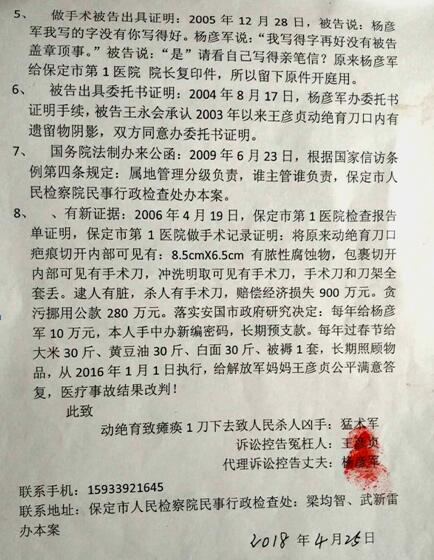 5、 做手术被告出具证明：2005 年 12 月 28 日，被告说：杨彦
军我写的字没有你写得好。杨彦军说：“我写得字再好没有被告
盖章顶事。”被告说：“是”请看自己写得亲笔信？原来杨彦军
给保定市第 1 医院 院长复印件，所以留下原件开庭用。
6、 被告出具委托书证明：2004 年 8 月 17 日，杨彦军办委托书
证明手续，被告王永会承认 2003 年以来王彦贞动绝育刀口内有
遗留物阴影，双方同意办委托书证明。
7、 国务院法制办来公函：2009 年 6 月 23 日，根据国家信访条
例第四条规定：属地管理分级负责，谁主管谁负责，保定市人
民检察院民事行政检查处办本案。
8、 、有新证据：2006 年 4 月 19 日，保定市第 1 医院检查报告
单证明，保定市第 1 医院做手术记录证明：将原来动绝育刀口
疤痕切开内部可见有：8.5cmX6.5cm 有脓性腐蚀物，包裹切开
内部可见有手术刀，冲洗明取可见有手术刀，手术刀和刀架全
套丢。逮人有脏，杀人有手术刀，赔偿经济损失 900 万元。贪
污挪用公款 280 万元。落实安国市政府研究决定：每年给杨彦
军 10 万元，本人手中办新编密码，长期预支款。每年过春节给
大米 30 斤、黄豆油 30 斤、白面 30 斤、被褥 1 套，长期照顾物
品，从 2016 年 1 月 1 日执行，给解放军妈妈王彦贞公平满意答
复，医疗事故结果改判！
此致
动绝育致瘫痪 1 刀下去致人民杀人凶手：猛术军
诉讼控告冤枉人：王彦贞
代理诉讼控告丈夫：杨彦军
联系手机：15933921645
联系地址：保定市人民检察院民事行政检查处：梁均智、武新雷
办本案
2018 年 4 月 25 日